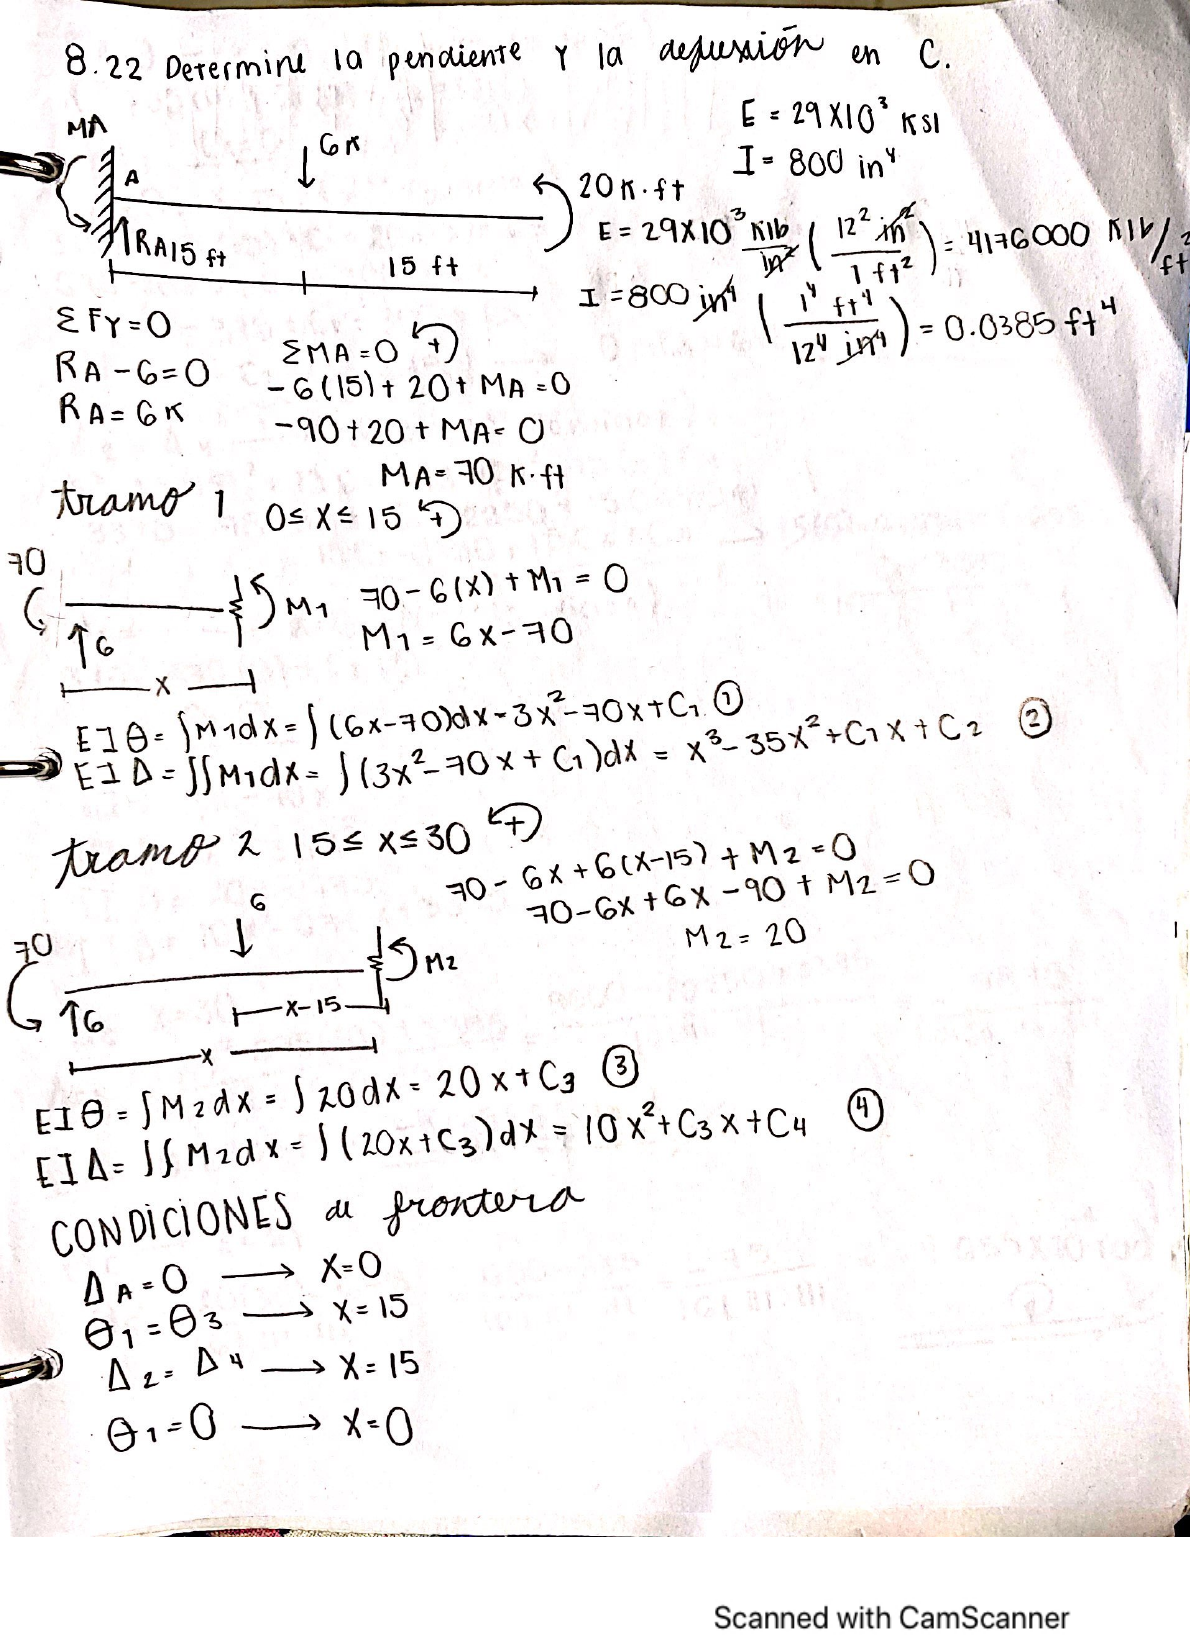 8.22 Determine la pendiente y la deflexión en C.
MA
A
6K
20 K·ft
RA
15 ft
15 ft
E = 29X10³ KSI
I = 800 in⁴
E = 29X10³ Klb/in² (12² in²/1 ft²) = 4176000 Klb/ft²
I = 800 in⁴ (1⁴ ft⁴/12⁴ in⁴) = 0.0385 ft⁴
ΣFY=0
RA-6=0
RA=6K
ΣMA=0 +
-6(15)+20+MA=0
-90+20+MA=0
MA=70 K·ft
tramo 1 0≤X≤15 +
70
6
M1
X
70-6(X)+M1=0
M1=6X-70
EIθ=∫M1dX=∫(6X-70)dX=3X²-70X+C1 ①
EIΔ=∫∫M1dX=∫(3X²-70X+C1)dX = X³-35X²+C1X+C2 ②
tramo 2 15≤X≤30 +
70-6X+6(X-15)+M2=0
70-6X+6X-90+M2=0
M2=20
70
6
6
M2
X-15
X
EIθ=∫M2dX=∫20dX=20X+C3 ③
EIΔ=∫∫M2dX=∫(20X+C3)dX=10X²+C3X+C4 ④
CONDICIONES de frontera
ΔA=0 → X=0
θ1=θ3 → X=15
Δ2=Δ4 → X=15
θ1=0 → X=0
Scanned with CamScanner